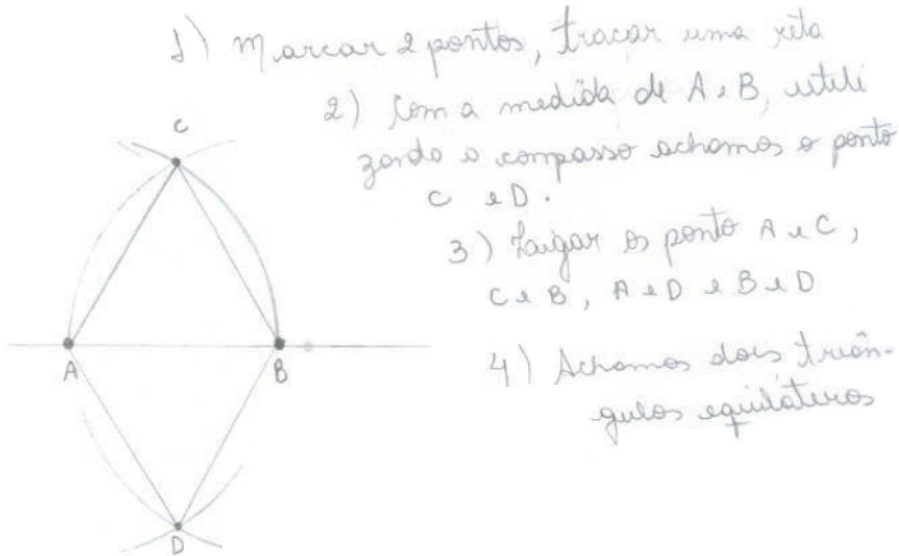 1) Marcar 2 pontos, traçar uma reta
2) Com a medida de A e B, utili
zando o compasso achamos o ponto
C e D.
3) Laigar os ponto A e C,
C e B, A e D e B e D
4) Achamos dois triân-
gulos equiláteros
C
A
B
D